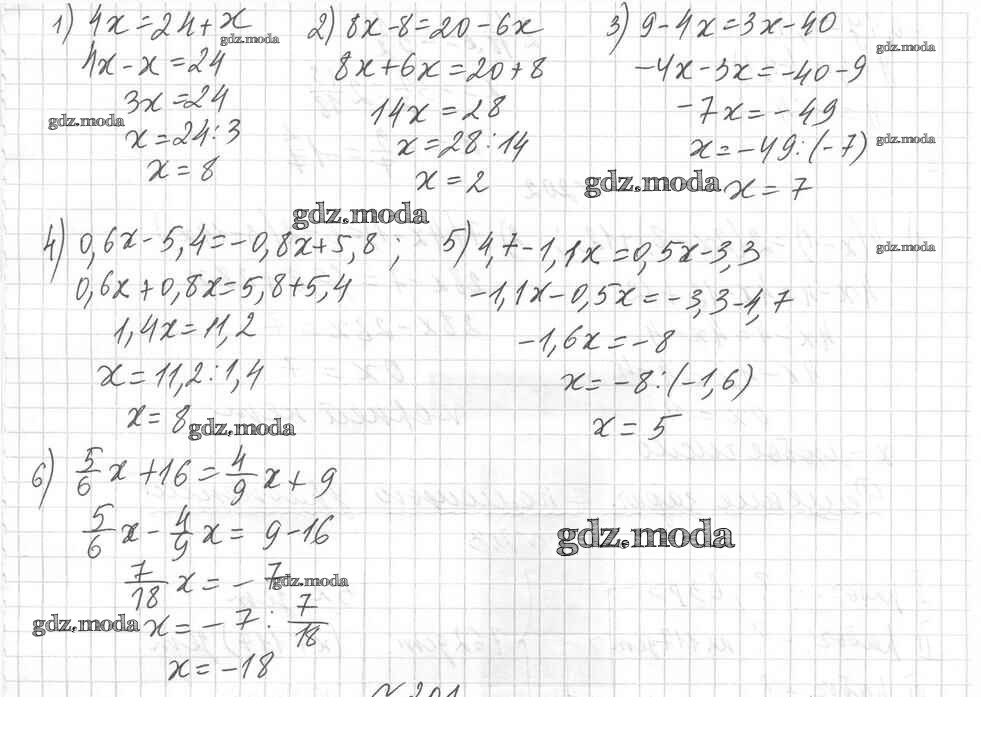 1) 4x=24+x
4x-x=24
3x=24
x=24:3
x=8
2) 8x-8=20-6x
8x+6x=20+8
14x=28
x=28:14
x=2
3) 9-4x=3x-40
-4x-3x=-40-9
-7x=-49
x=-49:(-7)
x=7
4) 0,6x-5,4=-0,8x+5,8;
0,6x+0,8x=5,8+5,4
1,4x=11,2
x=11,2:1,4
x=8
5) 4,7-1,1x=0,5x-3,3
-1,1x-0,5x=-3,3-4,7
-1,6x=-8
x=-8:(-1,6)
x=5
6) 5/6 x+16=4/9 x+9
5/6 x-4/9 x=9-16
7/18 x=-7
x=-7:7/18
x=-18
gdz.moda
gdz.moda
gdz.moda
gdz.moda
gdz.moda
gdz.moda
gdz.moda
gdz.moda
gdz.moda
gdz.moda
gdz.moda